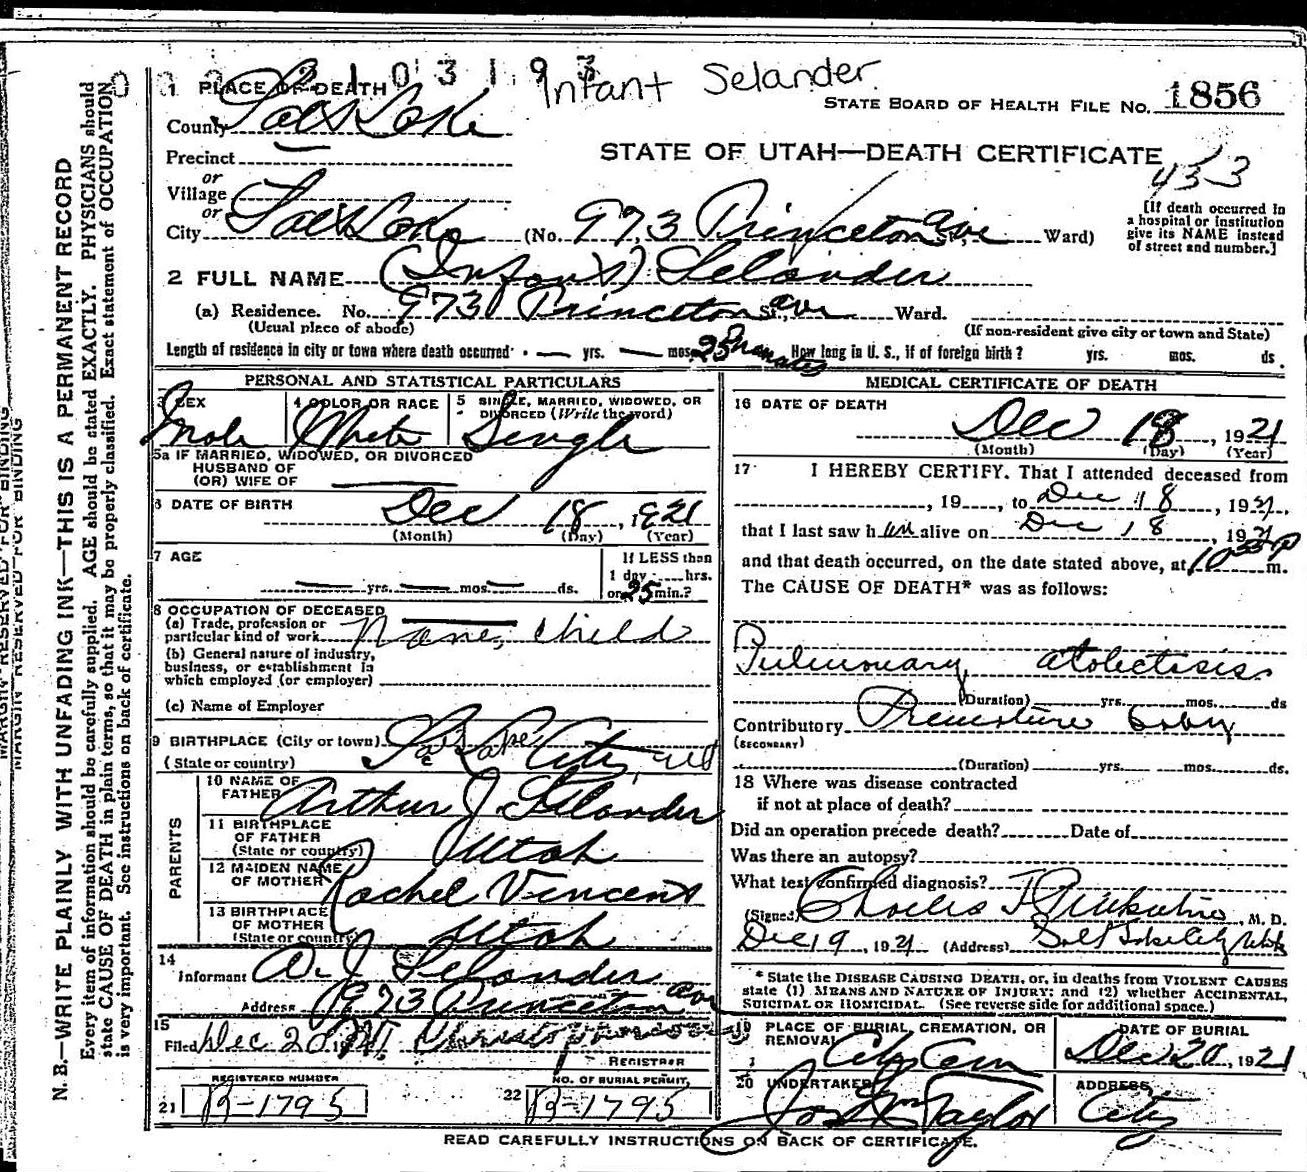 Infant Selander
1 PLACE OF DEATH
STATE BOARD OF HEALTH FILE NO. 1856
County Salt Lake
STATE OF UTAH—DEATH CERTIFICATE
Precinct
or
Village
or
City Salt Lake (No. 973 Princeton Ave St., Ward)
[If death occurred in
a hospital or institution
give its NAME instead
of street and number.]
2 FULL NAME (Infant) Selander
(a) Residence. No. 973 Princeton Ave St., Ward.
(Usual place of abode) (If non-resident give city or town and State)
Length of residence in city or town where death occurred — yrs. — mos. 25 minutes How long in U. S., if of foreign birth? yrs. mos. ds.
PERSONAL AND STATISTICAL PARTICULARS
3 SEX Male
4 COLOR OR RACE White
5 SINGLE, MARRIED, WIDOWED, OR
DIVORCED (Write the word) Single
5a IF MARRIED, WIDOWED, OR DIVORCED
HUSBAND OF
(OR) WIFE OF
6 DATE OF BIRTH Dec 18, 1921
(Month) (Day) (Year)
7 AGE
— yrs. — mos. — ds.
If LESS than
1 day hrs.
or 25 min.?
8 OCCUPATION OF DECEASED
(a) Trade, profession or
particular kind of work None, child
(b) General nature of industry,
business, or establishment in
which employed (or employer)
(c) Name of Employer
9 BIRTHPLACE (City or town) Salt Lake City,
(State or country)
PARENTS
10 NAME OF
FATHER Arthur J Selander
11 BIRTHPLACE
OF FATHER
(State or country) Utah
12 MAIDEN NAME
OF MOTHER Rachel Vincent
13 BIRTHPLACE
OF MOTHER
(State or country) Utah
14
Informant A. J. Selander
Address 973 Princeton Ave
15
Filed Dec 20
REGISTRAR
REGISTERED NUMBER
21 B-1795
NO. OF BURIAL PERMIT,
22 B-1795
MEDICAL CERTIFICATE OF DEATH
16 DATE OF DEATH
Dec 18, 1921
(Month) (Day) (Year)
17 I HEREBY CERTIFY. That I attended deceased from
, 19 , to Dec 18, 1921,
that I last saw him alive on Dec 18, 1921
and that death occurred, on the date stated above, at 10 35 P m.
The CAUSE OF DEATH* was as follows:
Pulmonary atelectisis
(Duration) yrs. mos. ds
Contributory Premature baby
(SECONDARY)
(Duration) yrs. mos. ds.
18 Where was disease contracted
if not at place of death?
Did an operation precede death? Date of
Was there an autopsy?
What test confirmed diagnosis?
(Signed) Charles , M. D.
Dec 19, 1921 (Address) Salt Lake City Utah
* State the DISEASE CAUSING DEATH, or, in deaths from VIOLENT CAUSES
state (1) MEANS AND NATURE OF INJURY; and (2) whether ACCIDENTAL,
SUICIDAL OR HOMICIDAL. (See reverse side for additional space.)
19 PLACE OF BURIAL, CREMATION, OR
REMOVAL City Cem
DATE OF BURIAL
Dec 20, 1921
20 UNDERTAKER
Jos Wm Taylor
ADDRESS
City
READ CAREFULLY INSTRUCTIONS ON BACK OF CERTIFICATE.
MARGIN RESERVED FOR BINDING
N. B.—WRITE PLAINLY WITH UNFADING INK—THIS IS A PERMANENT RECORD
Every item of information should be carefully supplied. AGE should be stated EXACTLY. PHYSICIANS should
state CAUSE OF DEATH in plain terms, so that it may be properly classified. Exact statement of OCCUPATION
is very important. See instructions on back of certificate.